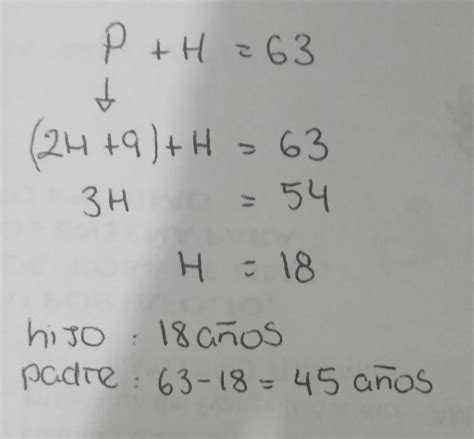 P + H = 63
↓
(2H + 9) + H = 63
3H = 54
H = 18
hijo : 18 años
padre : 63 - 18 = 45 años